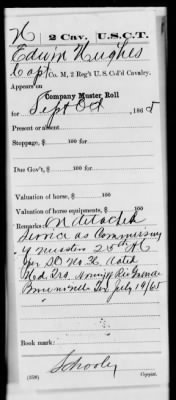 H | 2 Cav. | U.S.C.T.
Edwin Hughes
Capt, Co. M, 2 Reg't U.S. Col'd Cavalry.
Appears on
Company Muster Roll
for Sept Oct, 1865
Present or absent
Stoppage, $ 100 for
Due Gov't, $ 100 for
Valuation of horse, $ 100
Valuation of horse equipments, $ 100
Remarks: On detached
service as Commissary
of Musters 25th AC
per SO No. 36 dated
Hd. Qrs.
Brownsville Tex July 14/65
Book mark:
Schooley
(358) Copyist.